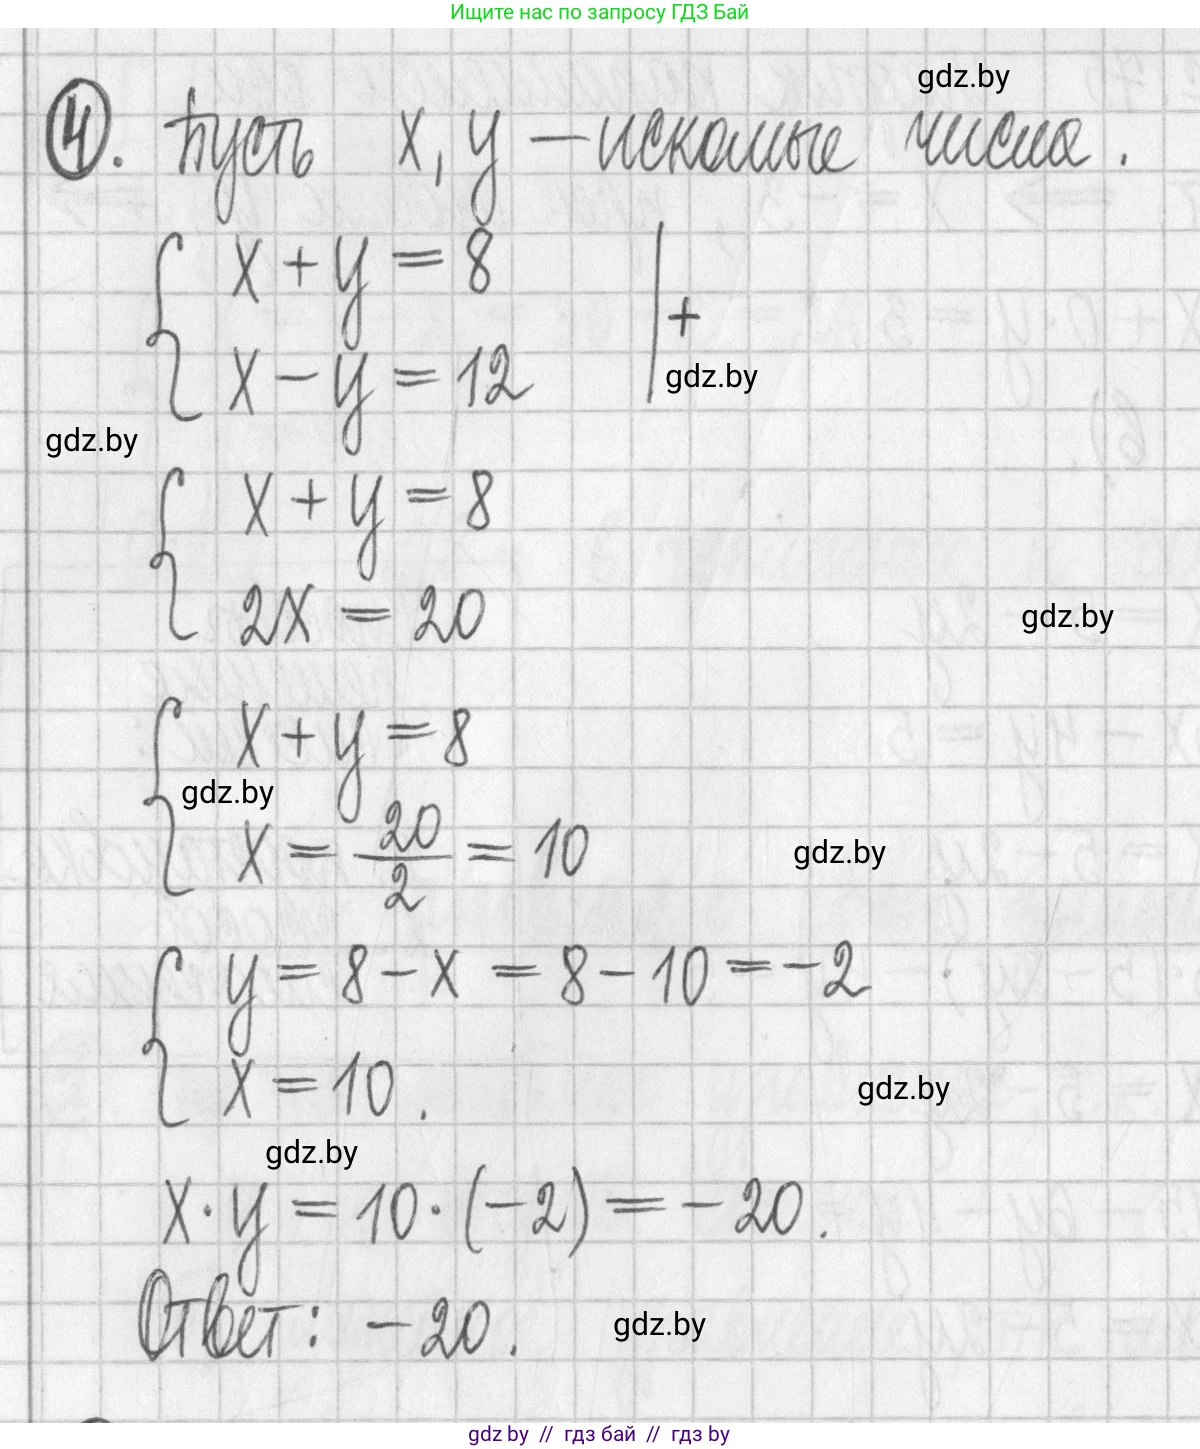 Ищите нас по запросу ГДЗ Бай
gdz.by
④. Пусть x, y — искомые числа.
{ x + y = 8 | +
{ x − y = 12
gdz.by
gdz.by
{ x + y = 8
{ 2x = 20
gdz.by
{ x + y = 8
gdz.by
{ x = 20/2 = 10
gdz.by
{ y = 8 − x = 8 − 10 = −2
{ x = 10.
gdz.by
gdz.by
x · y = 10 · (−2) = −20.
Ответ: −20.
gdz.by
gdz.by // гдз бай // гдз by